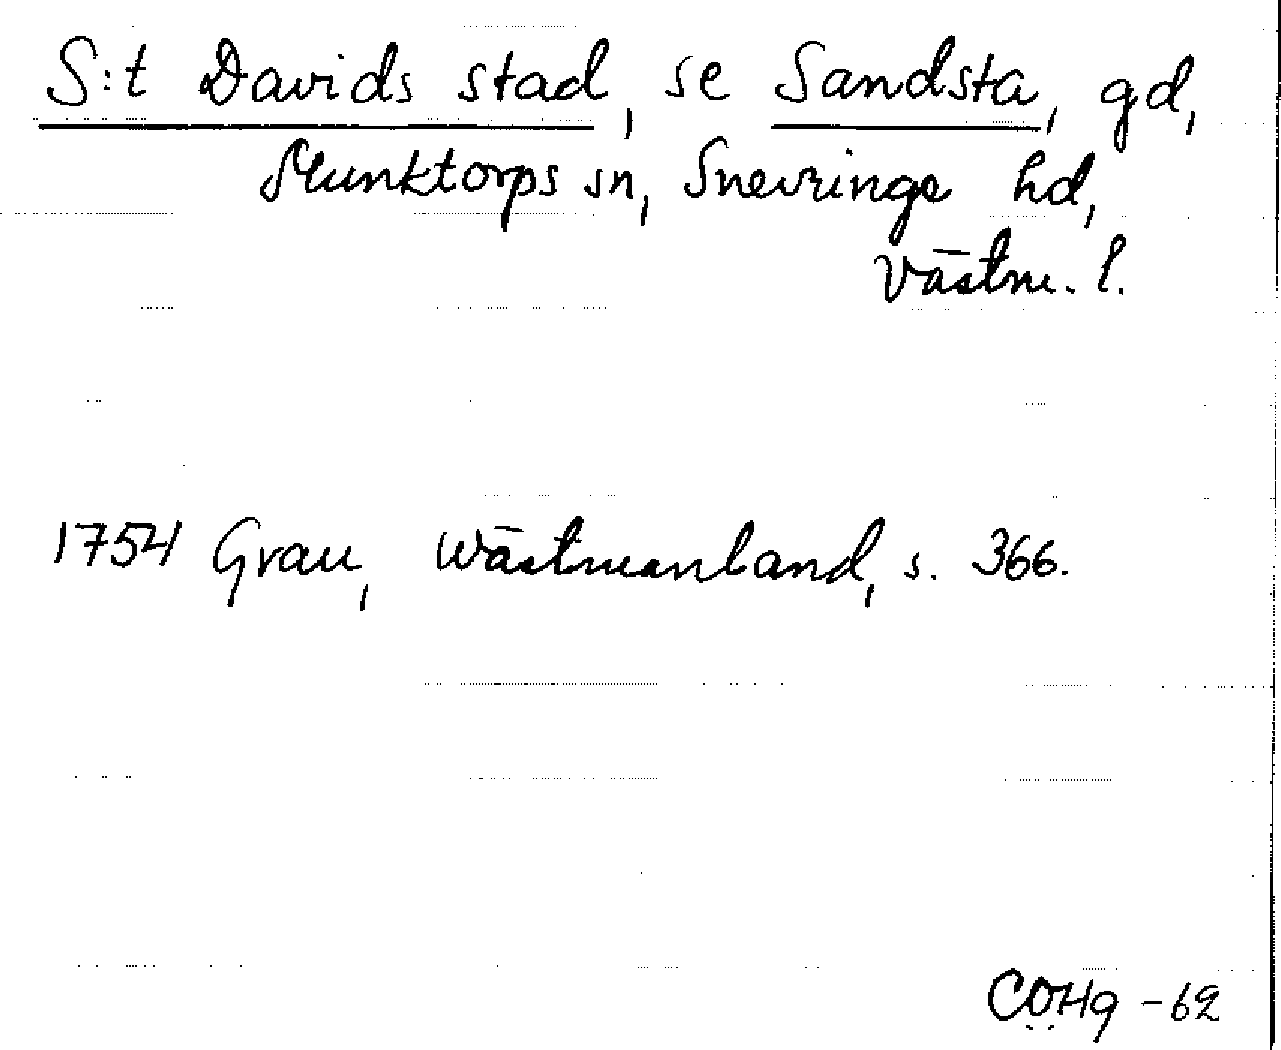 S:t Davids stad, se Sandsta, gd,
Munktorps sn, Snevringe hd,
Västm. l.
1754 Grau, Wästmanland, s. 366.
CÖHg -62